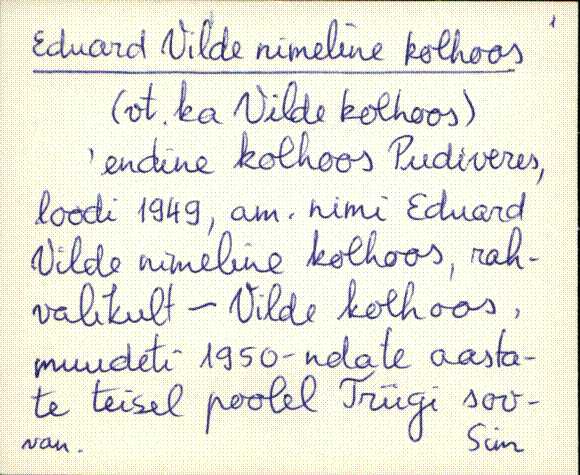 Eduard Vilde nimeline kolhoos
(vt. ka Vilde kolhoos)
'endine kolhoos Pudiveres,
loodi 1949, am. nimi Eduard
Vilde nimeline kolhoos, rah-
valikult – Vilde kolhoos,
muudeti 1950-ndate aasta-
te teisel poolel Triigi sov-
van. Sim